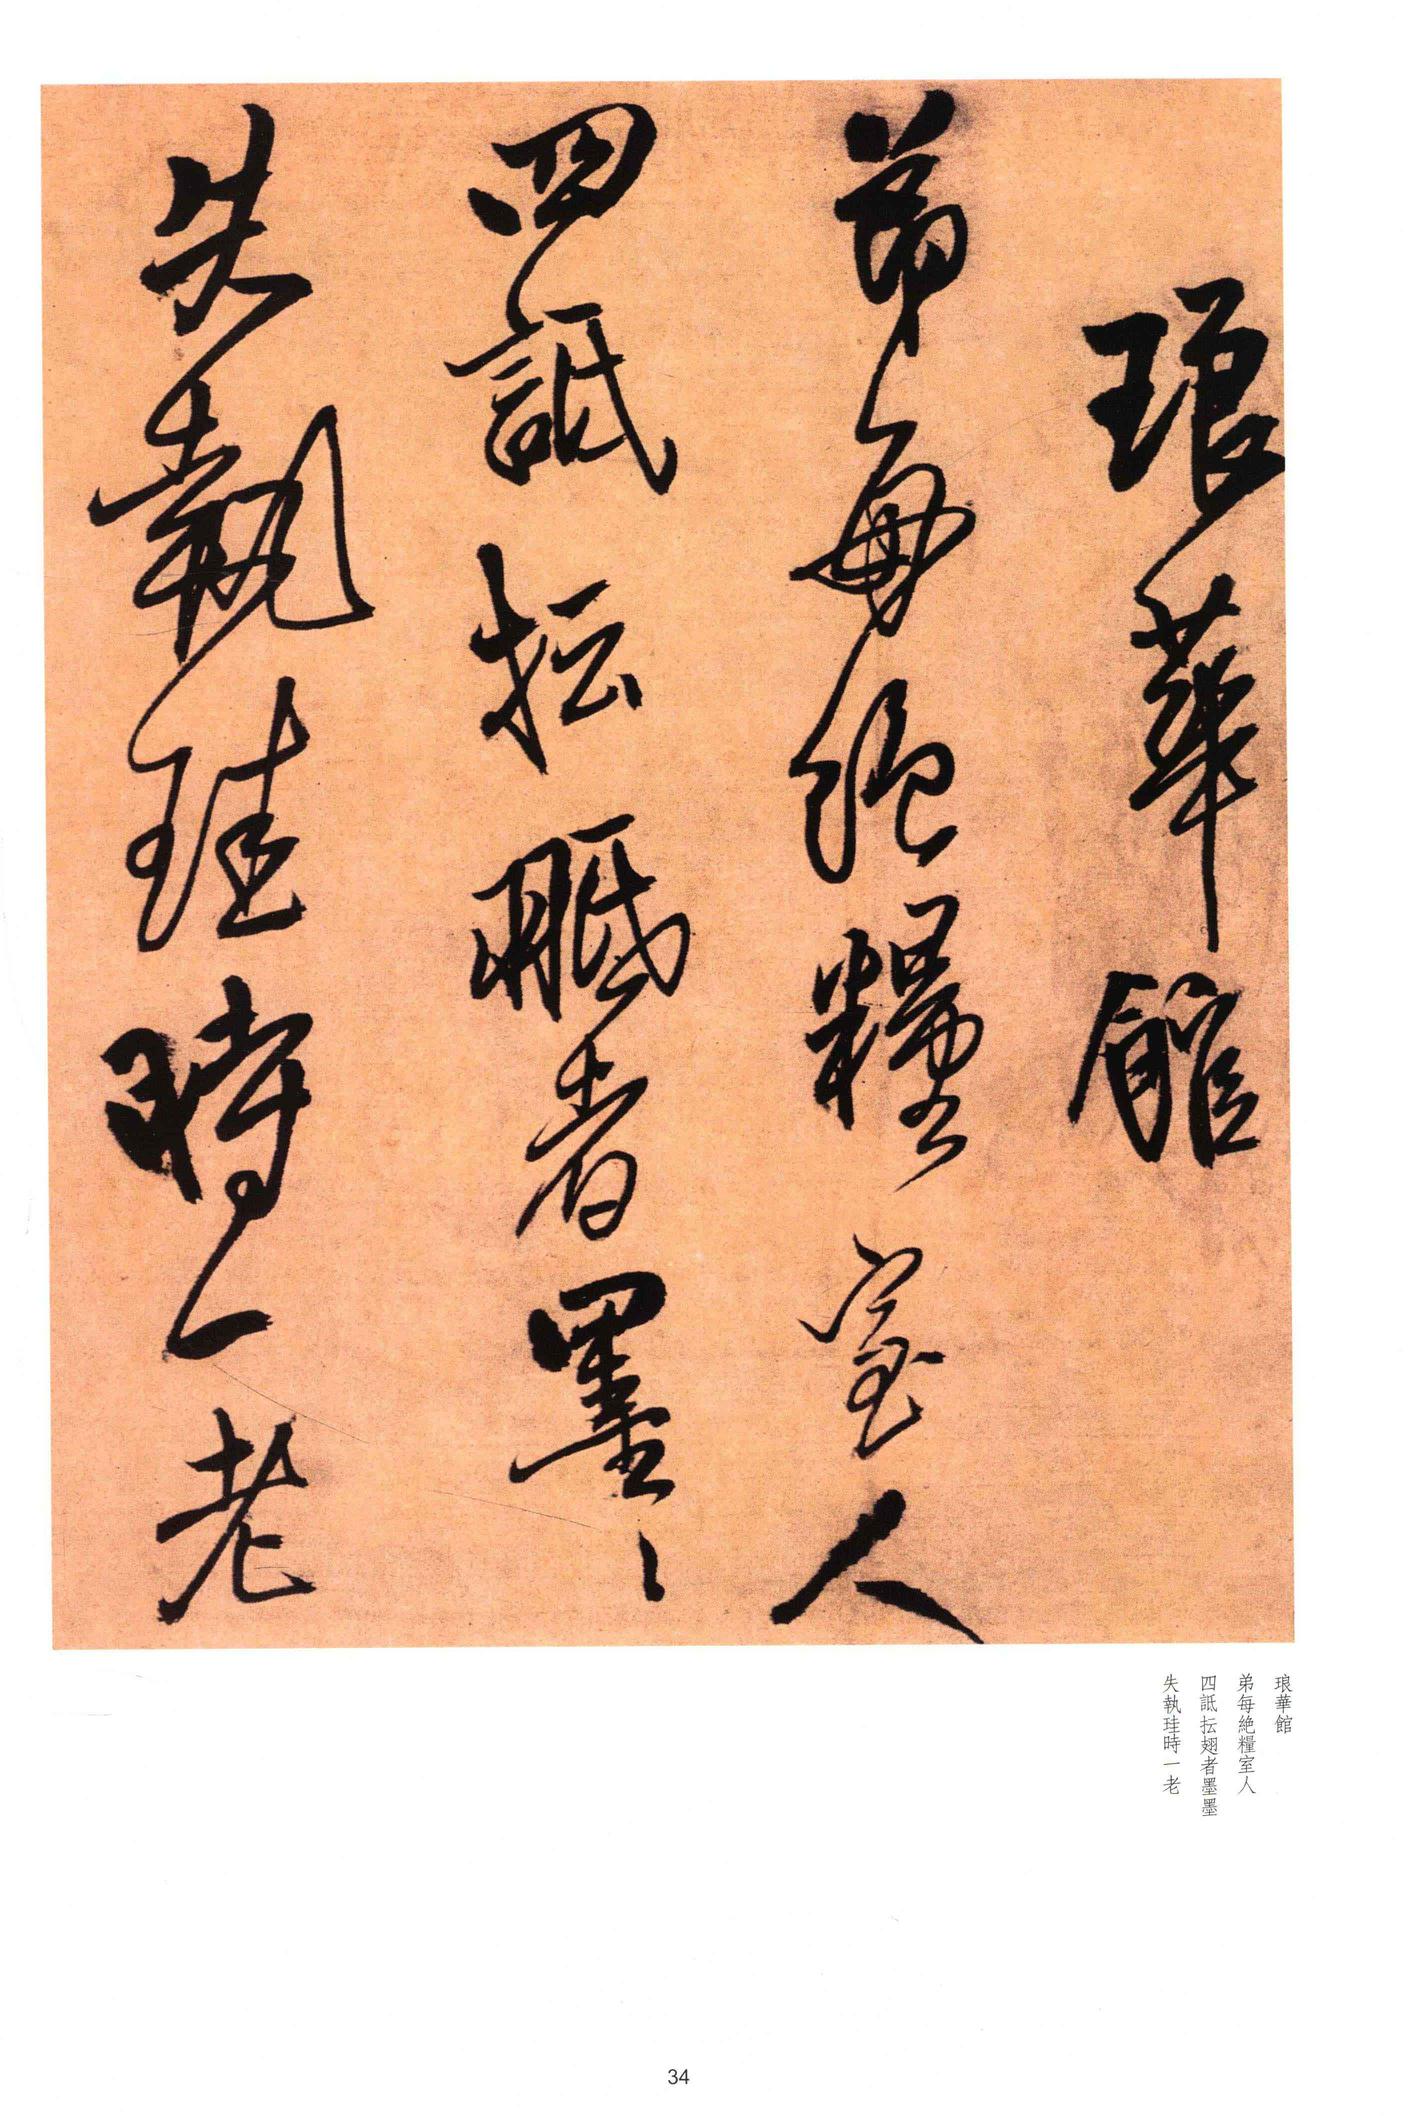 琅華館
弟每絶糧室人
四詆抎翅者墨〻
失執珪時一老
琅華館
弟每絶糧室人
四詆抎翅者墨墨
失執珪時一老
34